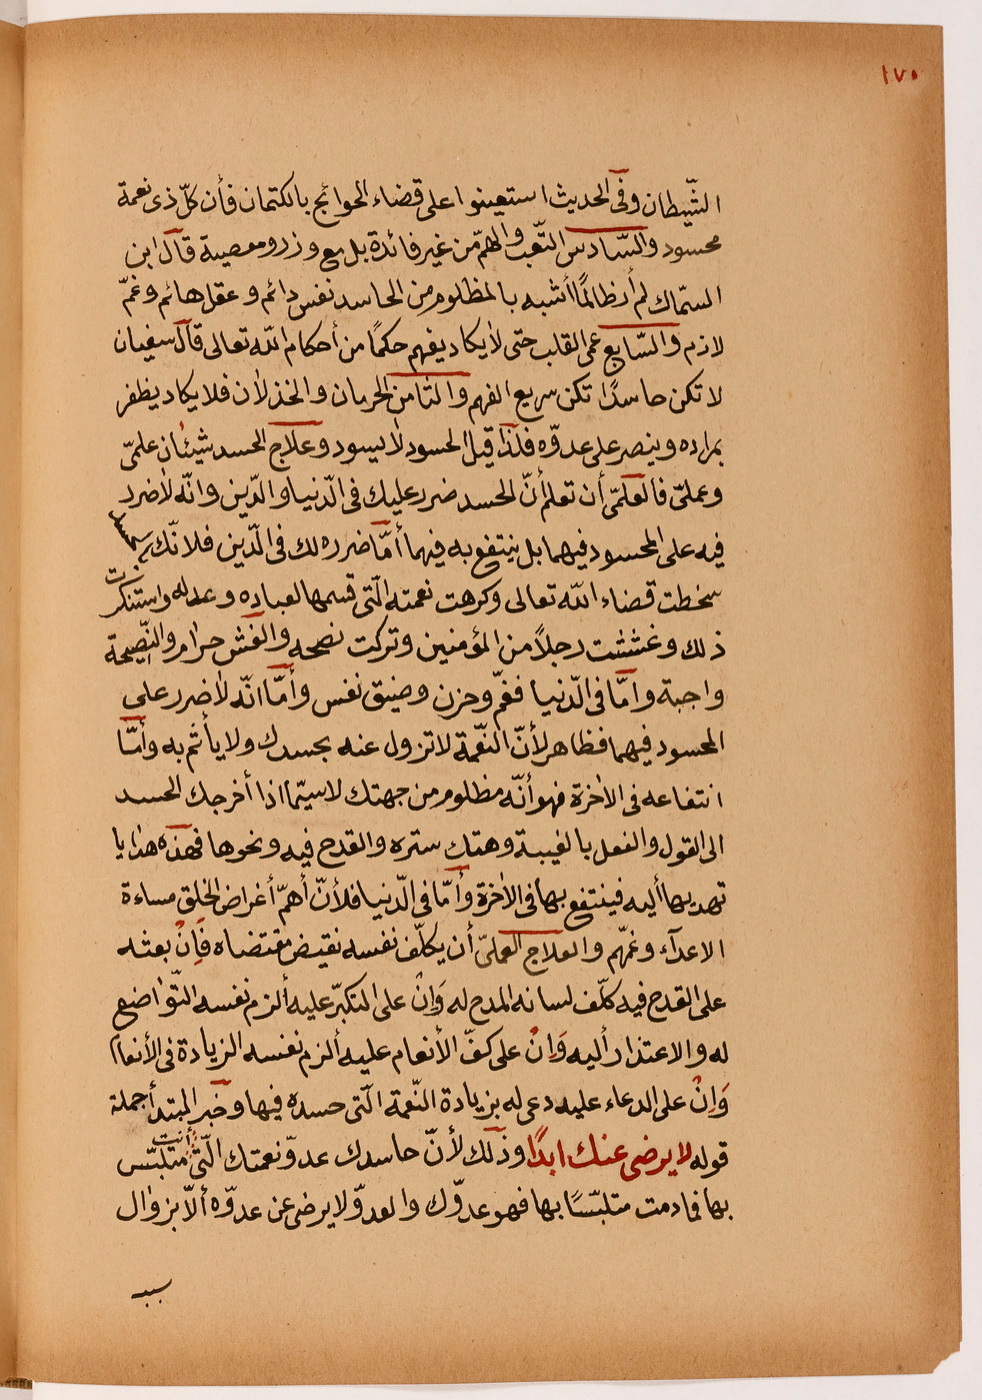 ١٧٥
الشّيطان وفى الحديث استعينوا على قضاء الحوائج بالكتمان فأن كلّ ذى نعمة
محسود والسّادس التّعب والهمّ من غير فائدة بل مع وزر ومعصية قال ابن
السمّاك لم أر ظالمًا أشبه بالمظلوم من الحاسد نفس دائم وعقل هائم وغمّ
لازم والسّابع عمى القلب حتى لا يكاد يفهم حكمًا من أحكام الله تعالى قال سفيان
لا تكن حاسدًا تكن سريع الفهم والثامن الحرمان والخذلان فلا يكاد يظفر
بمراده وينصر على عدوّه فلذا قيل الحسود لا يسود وعلاج الحسد شيئان علمىّ
وعملىّ فالعلمىّ أن تعلم أنّ الحسد ضرر عليك فى الدّنيا والدّين وانّه لا ضرر
فيه على المحسود فيهما بل ينتفع به فيهما أمّا ضرره لك فى الدّين فلانّك
سخطت قضاء الله تعالى وكرهت نعمته الّتى قسمها لعباده وعدله واستنكرت
ذلك وغششت رجلاً من المؤمنين وتركت نصحه والغش حرام والنّصيحة
واجبة وامّا فى الدّنيا فغمّ وحزن وضيق نفس وأمّا انّه لا ضرر على
المحسود فيهما فظاهر لأنّ النّعمة لا تزول عنه بحسدك ولا يأثم به وأمّا
انتفاعه فى الاخرة فهو أنّه مظلوم من جهتك لا سيّما اذا أخرجك الحسد
الى القول والفعل بالغيبة وهتك ستره والقدح فيه ونحوها فهذه هدايا
تهديها أليه فينتفع بها فى الاخرة وأمّا فى الدّنيا فلأنّ أهمّ أغراض الخلق مساءة
الاعدآء وغمّهم والعلاج العملىّ أن يكلّف نفسه نقيض مقتضاه فَاِنْ بعثه
على القدح فيه كلّف لسانه المدح له وَاِنْ على التكبّر عليه ألزم نفسه التّواضع
له والاعتذار أليه وَاِنْ على كفّ الأنعام عليه ألزم نفسه الزيادة فى الأنعام
وَاِنْ على الدعاء عليه دعى له بزيادة النّعمة الّتى حسده فيها وخبر المبتدأ جملة
قوله لا يرضى عنك ابدًا وذلك لأنّ حاسدك عدوّ نعمتك الّتى أنت متلبّس
بها فمادمت متلبّسًا بها فهو عدوّك والعدوّ لا يرضى عن عدوّه ألاّ بزوال